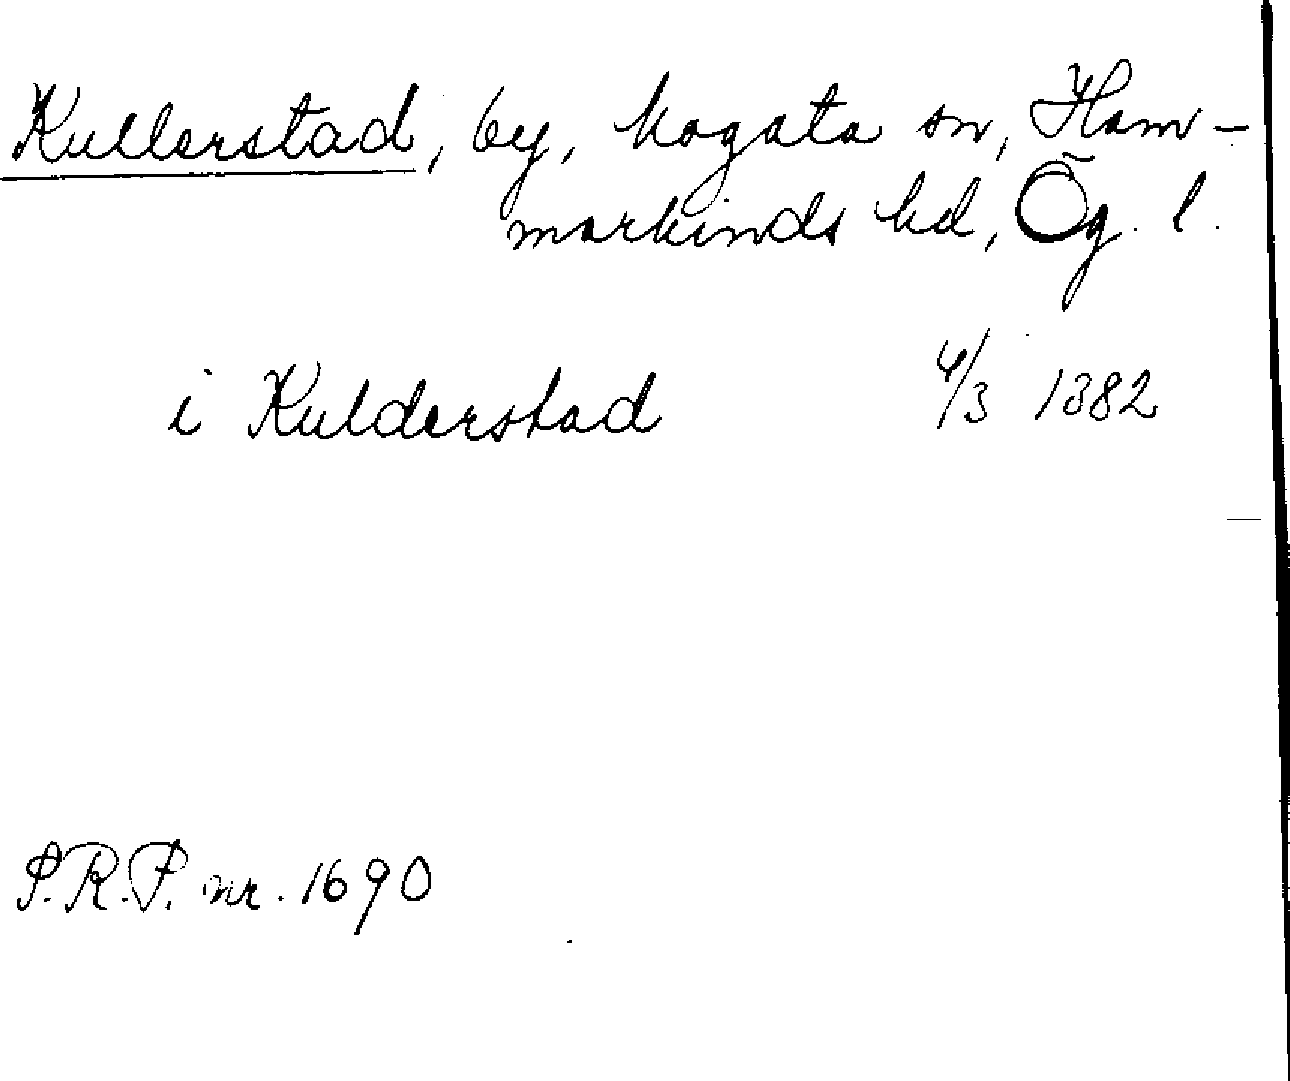 Kullerstad, by, Kogata sn, Ham-
markinds hd, Ög. l.
i Kulderstad 4/3 1382
S.R.P. nr. 1690